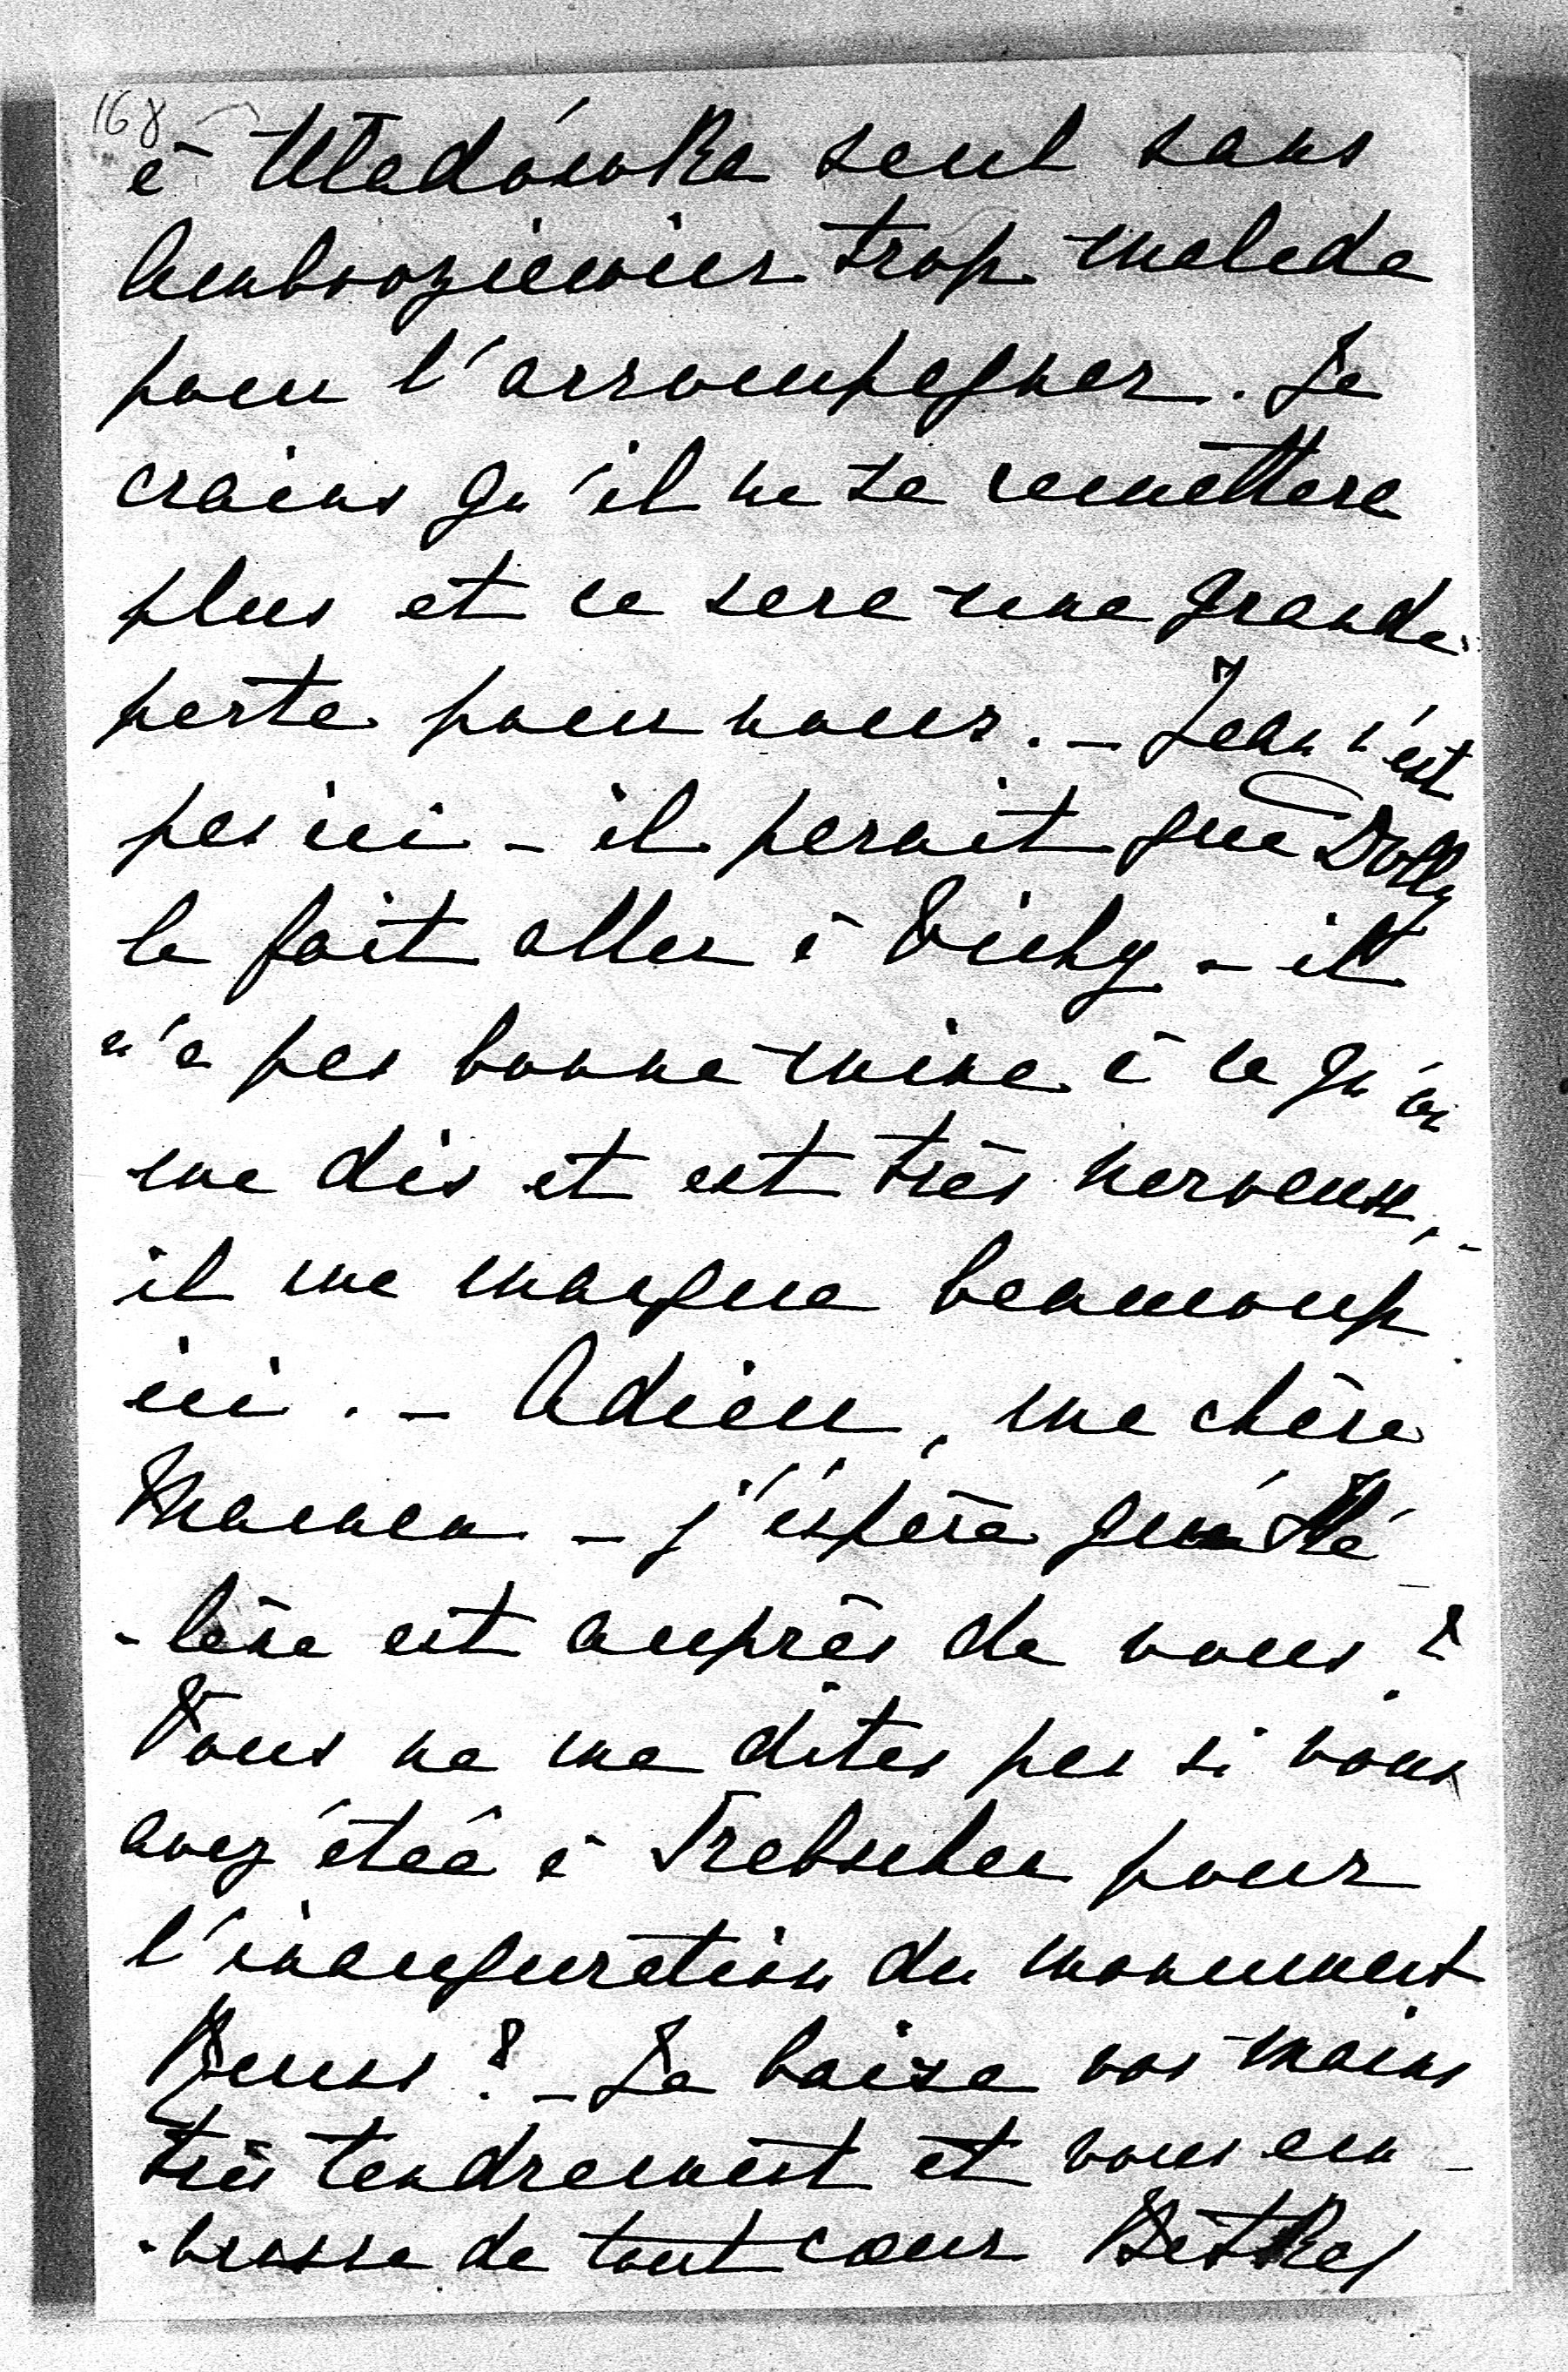 168
à Władówka seul sans
Ambroziewicz trop malade
pour l'accompagner. Je
crains qu'il ne se remettera
plus et ce sera une grande
perte pour nous. – Jean n'est
pas ici – il parait que Dolly
le fait aller à Vichy – il
n'a pas bonne mine à ce qu'on
me dis et est très nerveux, –
il me manque beaucoup
ici. – Adieu, ma chère
Maman – j'éspère que Hé-
-lène est auprès de vous?
Vous ne me dites pas si vous
avez étée à Trebschen pour
l'inauguration du monument
Reuss? – Je baise vos mains
très tendrement et vous em-
-brasse de tout cœur Bétka